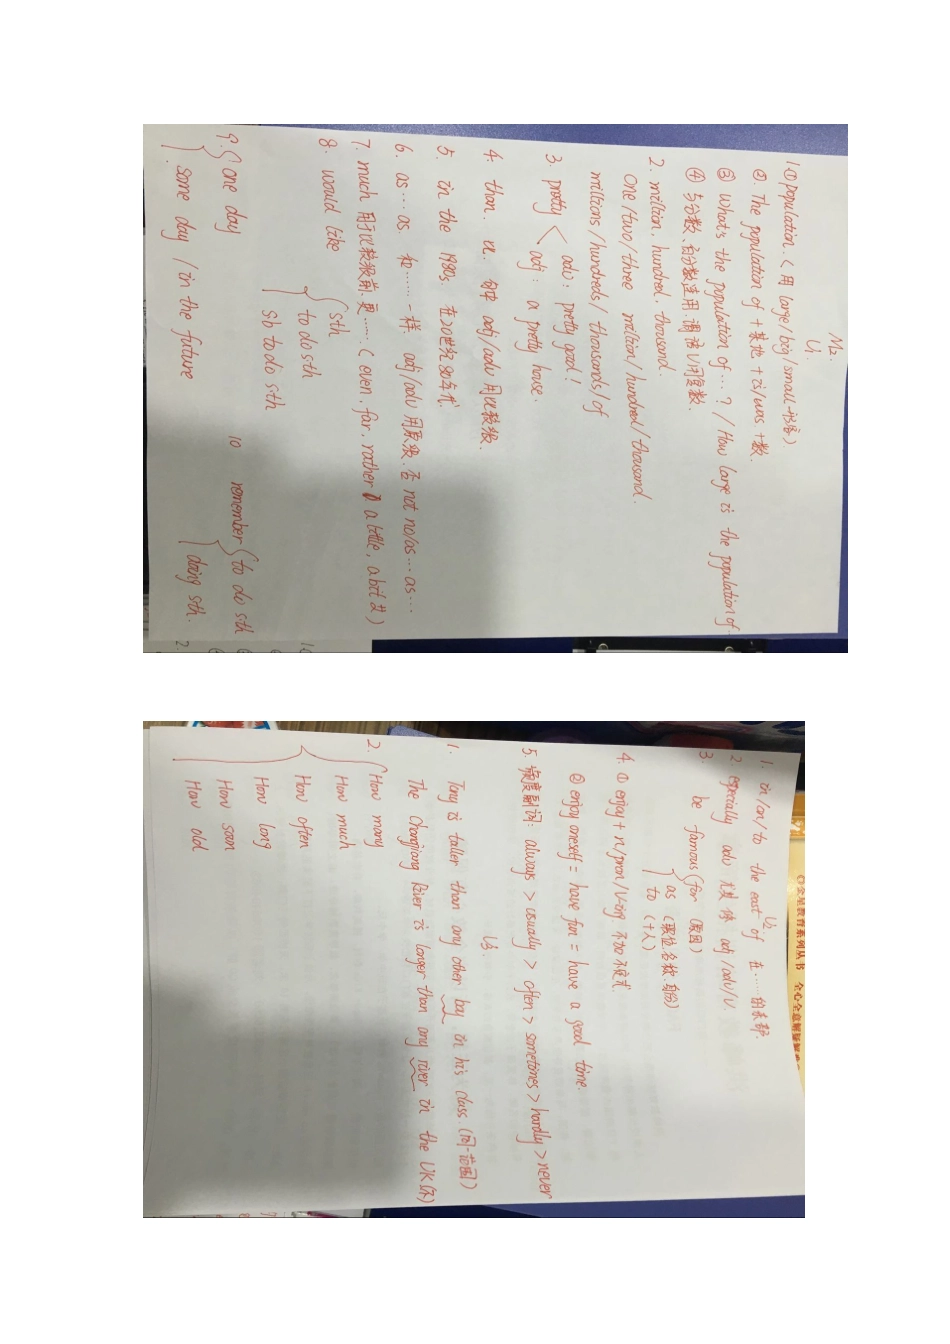 M2.
U1
1.①population.(用 large/big/small 形容)
②. The population of +某地 + is/was +数.
③ What's the population of …? / How large is the population of
④ 与分数、百分数连用,谓语V用复数.
2. million. hundred. thousand.
One/two/three million/hundred/thousand.
millions/hundreds/thousands/of
3. pretty
adv: pretty good!
adj: a pretty house.
4. than. 比. 句中 adj/adv 用比较级.
5. in the 1980s. 在20世纪80年代
6. as … as. 和……一样 adj/adv 用原级. 否 not so/as … as …
7. much 用于比较级前.更……(even. far. rather a little, a bit 也)
8. would like
sth
to do sth
sb to do sth
9. one day
some day / in the future
10 remember
to do sth
doing sth.
U2
1. in/on/to the east of 在……的东部.
2. especially adv 尤其 修 adj/adv/v.
3. be famous
for (原因)
as (职位.名称.身份)
to (+人)
4. ① enjoy + n/pron/V-ing. 不加不定式.
② enjoy oneself = have fun = have a good time.
5. 频度副词: always > usually > often > sometimes > hardly > never
U3.
1. Tony is taller than any other boy in his class.(同一范围)
The Changjiang River is longer than any river in the UK(不)
2. How many
How much
How often
How long
How soon
How old
金星教育系列丛书 全心全意解疑